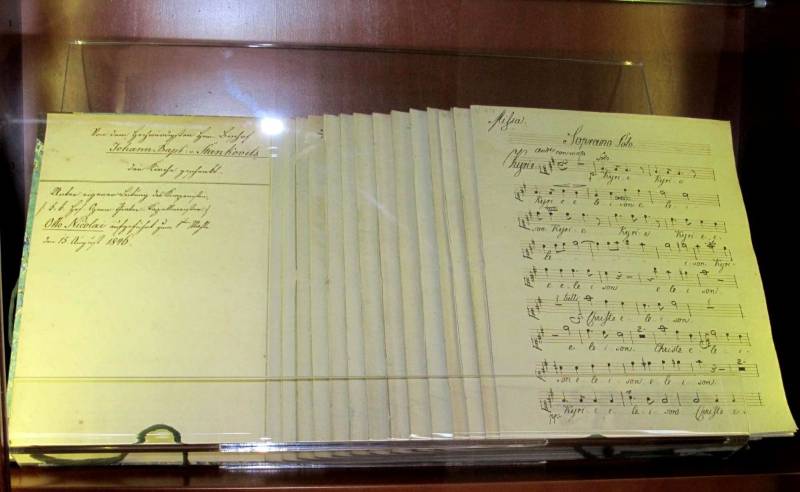 Von dem Hochwürdigsten Herrn Bischof
Johann Bapt. v. Stankovits
der Kirche geschenkt.
Unter eigener Leitung des Komponisten,
k. k. Hof Opern Theater Kapellmeisters
Otto Nicolai aufgeführt zum 1ten Mahl
den 15 August 1846
Missa.
Soprano Solo.
Solo
Kyrie. Kyri e Kyri e
Kyri e e le i son e le i
son Kyri e Kyri e Kyri e
e le i son Kyri
e e le i son e le i son.
tutti
Christe e le i son.
e le i son. Christe e le i
son e le i son e le i son.
Kyri e e le i son Christe e